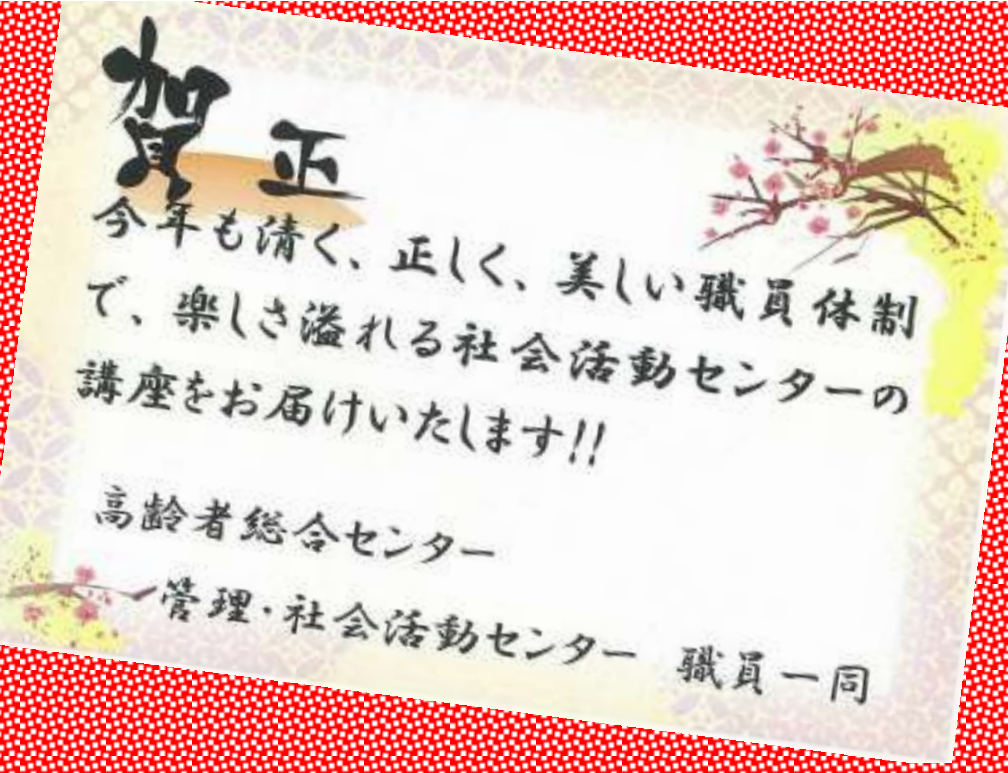 賀正
今年も清く、正しく、美しい職員体制
で、楽しさ溢れる社会活動センターの
講座をお届けいたします!!
高齢者総合センター
管理・社会活動センター 職員一同